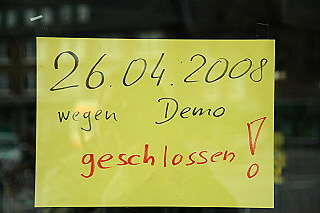 26.04.2008
wegen Demo
geschlossen!